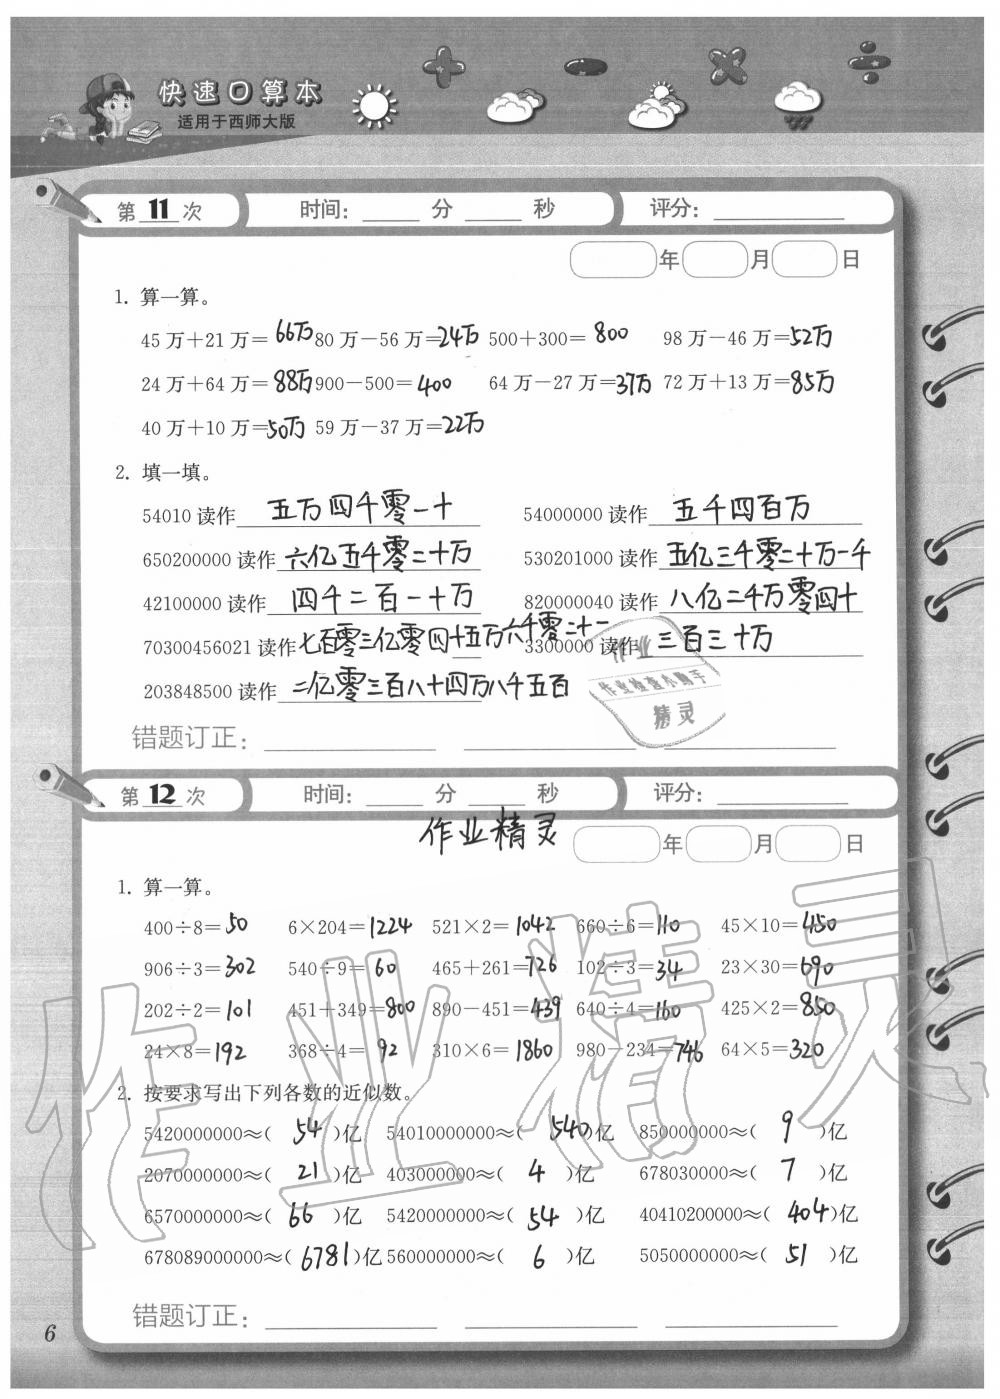 快速口算本
适用于西师大版
第 11 次 时间: 分 秒 评分:
年 月 日
1. 算一算。
45万+21万=66万 80万-56万=24万 500+300=800 98万-46万=52万
24万+64万=88万 900-500=400 64万-27万=37万 72万+13万=85万
40万+10万=50万 59万-37万=22万
2. 填一填。
54010读作 五万四千零一十 54000000读作 五千四百万
650200000读作 六亿五千零二十万 530201000读作 五亿三千零二十万一千
42100000读作 四千二百一十万 820000040读作 八亿二千万零四十
70300456021读作 七百零三亿零四十五万六千零二十一 3300000读作 三百三十万
203848500读作 二亿零三百八十四万八千五百
作业
作业检查小助手
精灵
错题订正:
第 12 次 时间: 分 秒 评分:
作业精灵
年 月 日
1. 算一算。
400÷8=50 6×204=1224 521×2=1042 660÷6=110 45×10=450
906÷3=302 540÷9=60 465+261=726 102÷3=34 23×30=690
202÷2=101 451+349=800 890-451=439 640÷4=160 425×2=850
24×8=192 368÷4=92 310×6=1860 980-234=746 64×5=320
2. 按要求写出下列各数的近似数。
5420000000≈( 54 )亿 54010000000≈( 540 )亿 850000000≈( 9 )亿
2070000000≈( 21 )亿 403000000≈( 4 )亿 678030000≈( 7 )亿
6570000000≈( 66 )亿 5420000000≈( 54 )亿 40410200000≈( 404 )亿
678089000000≈( 6781 )亿 560000000≈( 6 )亿 5050000000≈( 51 )亿
错题订正:
6
作业精灵